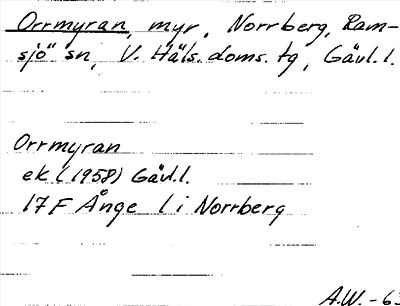 Orrmyran, myr, Norrberg, Ram-
sjö sn, V. Häls. doms. tg, Gävl. l.
Orrmyran
ek. (1958) Gävl.l.
17 F Ånge l i Norrberg
A.W. - 63